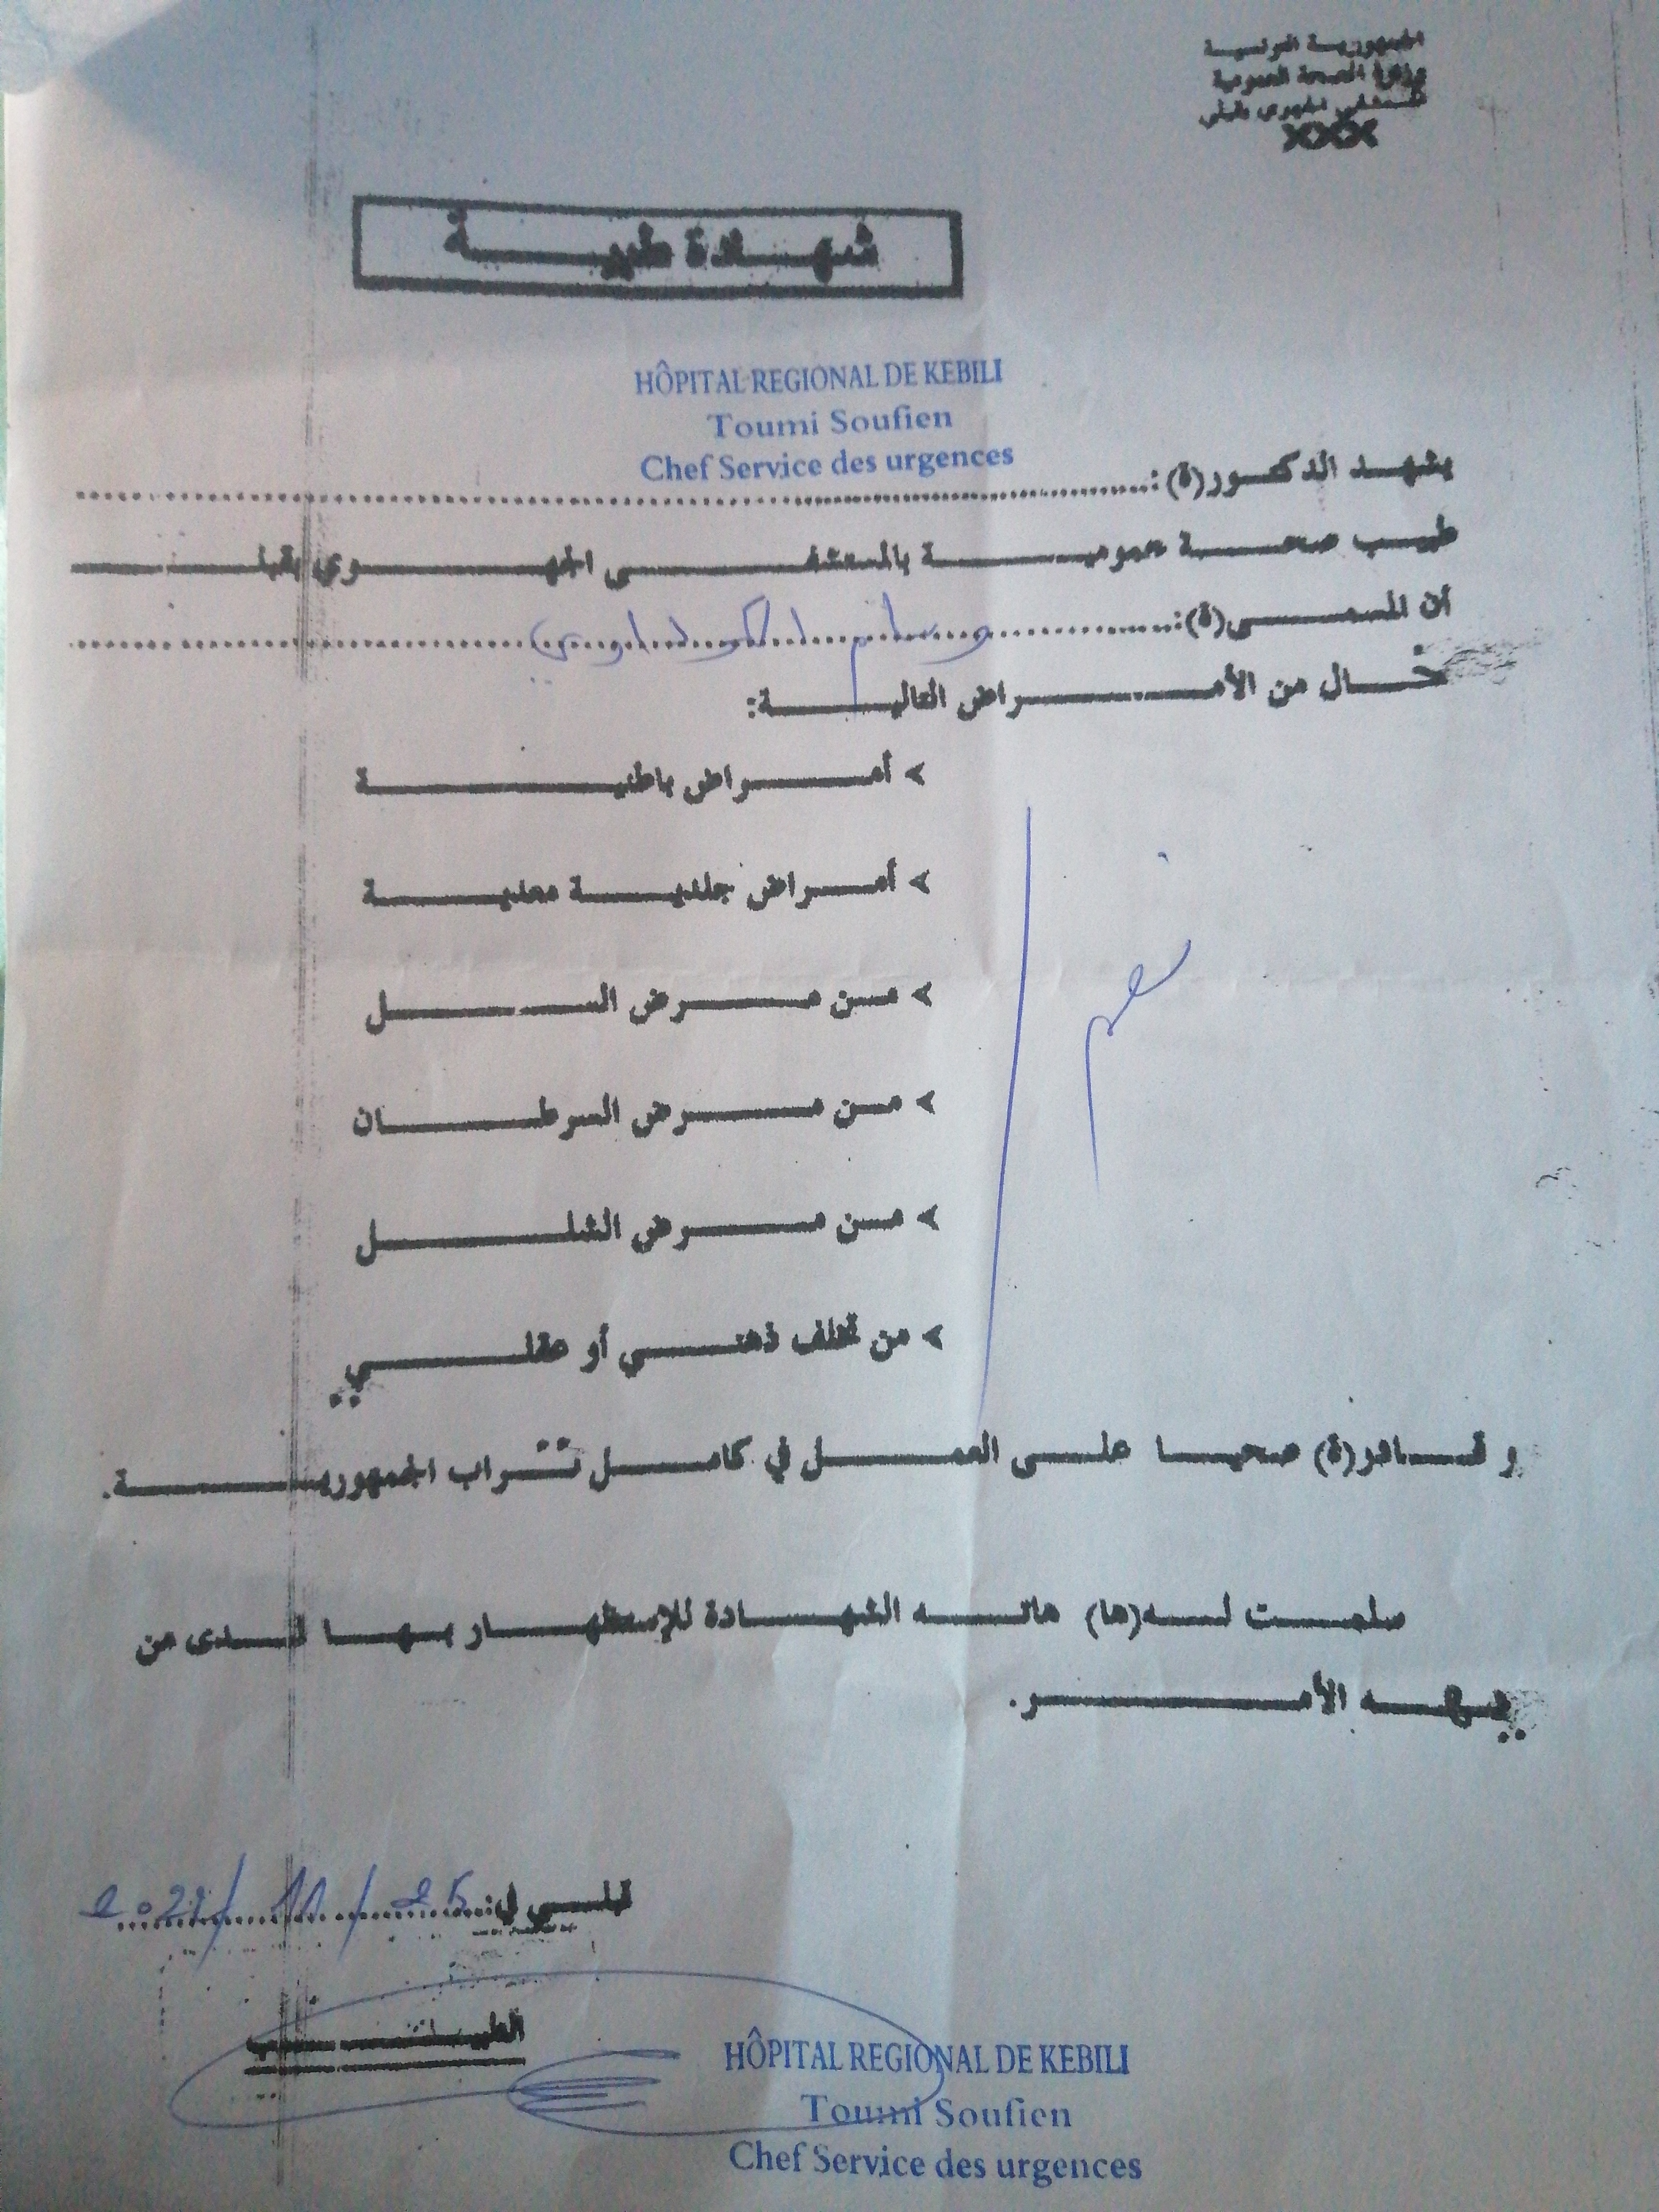 الجمهورية التونسية
وزارة الصحة العمومية
المستشفى الجهوي بقبلي
XXX
شهادة طبية
HÔPITAL REGIONAL DE KEBILI
Toumi Soufien
Chef Service des urgences
يشهد الدكتور(ة):
طبيب صحة عمومية بالمستشفى الجهوي بقبلي
أن المسمى(ة): وسام
خال من الأمراض التالية:
أمراض باطنية
أمراض جلدية معدية
من مرض السل
من مرض السرطان
من مرض الشلل
من تخلف ذهني أو عقلي
نعم
و قادر(ة) صحيا على العمل في كامل تراب الجمهورية.
سلمت له(ها) هاته الشهادة للإستظهار بها لدى من
يهمه الأمر.
قبلي في: 25 / 11 / 2021
الطبيب
HÔPITAL REGIONAL DE KEBILI
Toumi Soufien
Chef Service des urgences